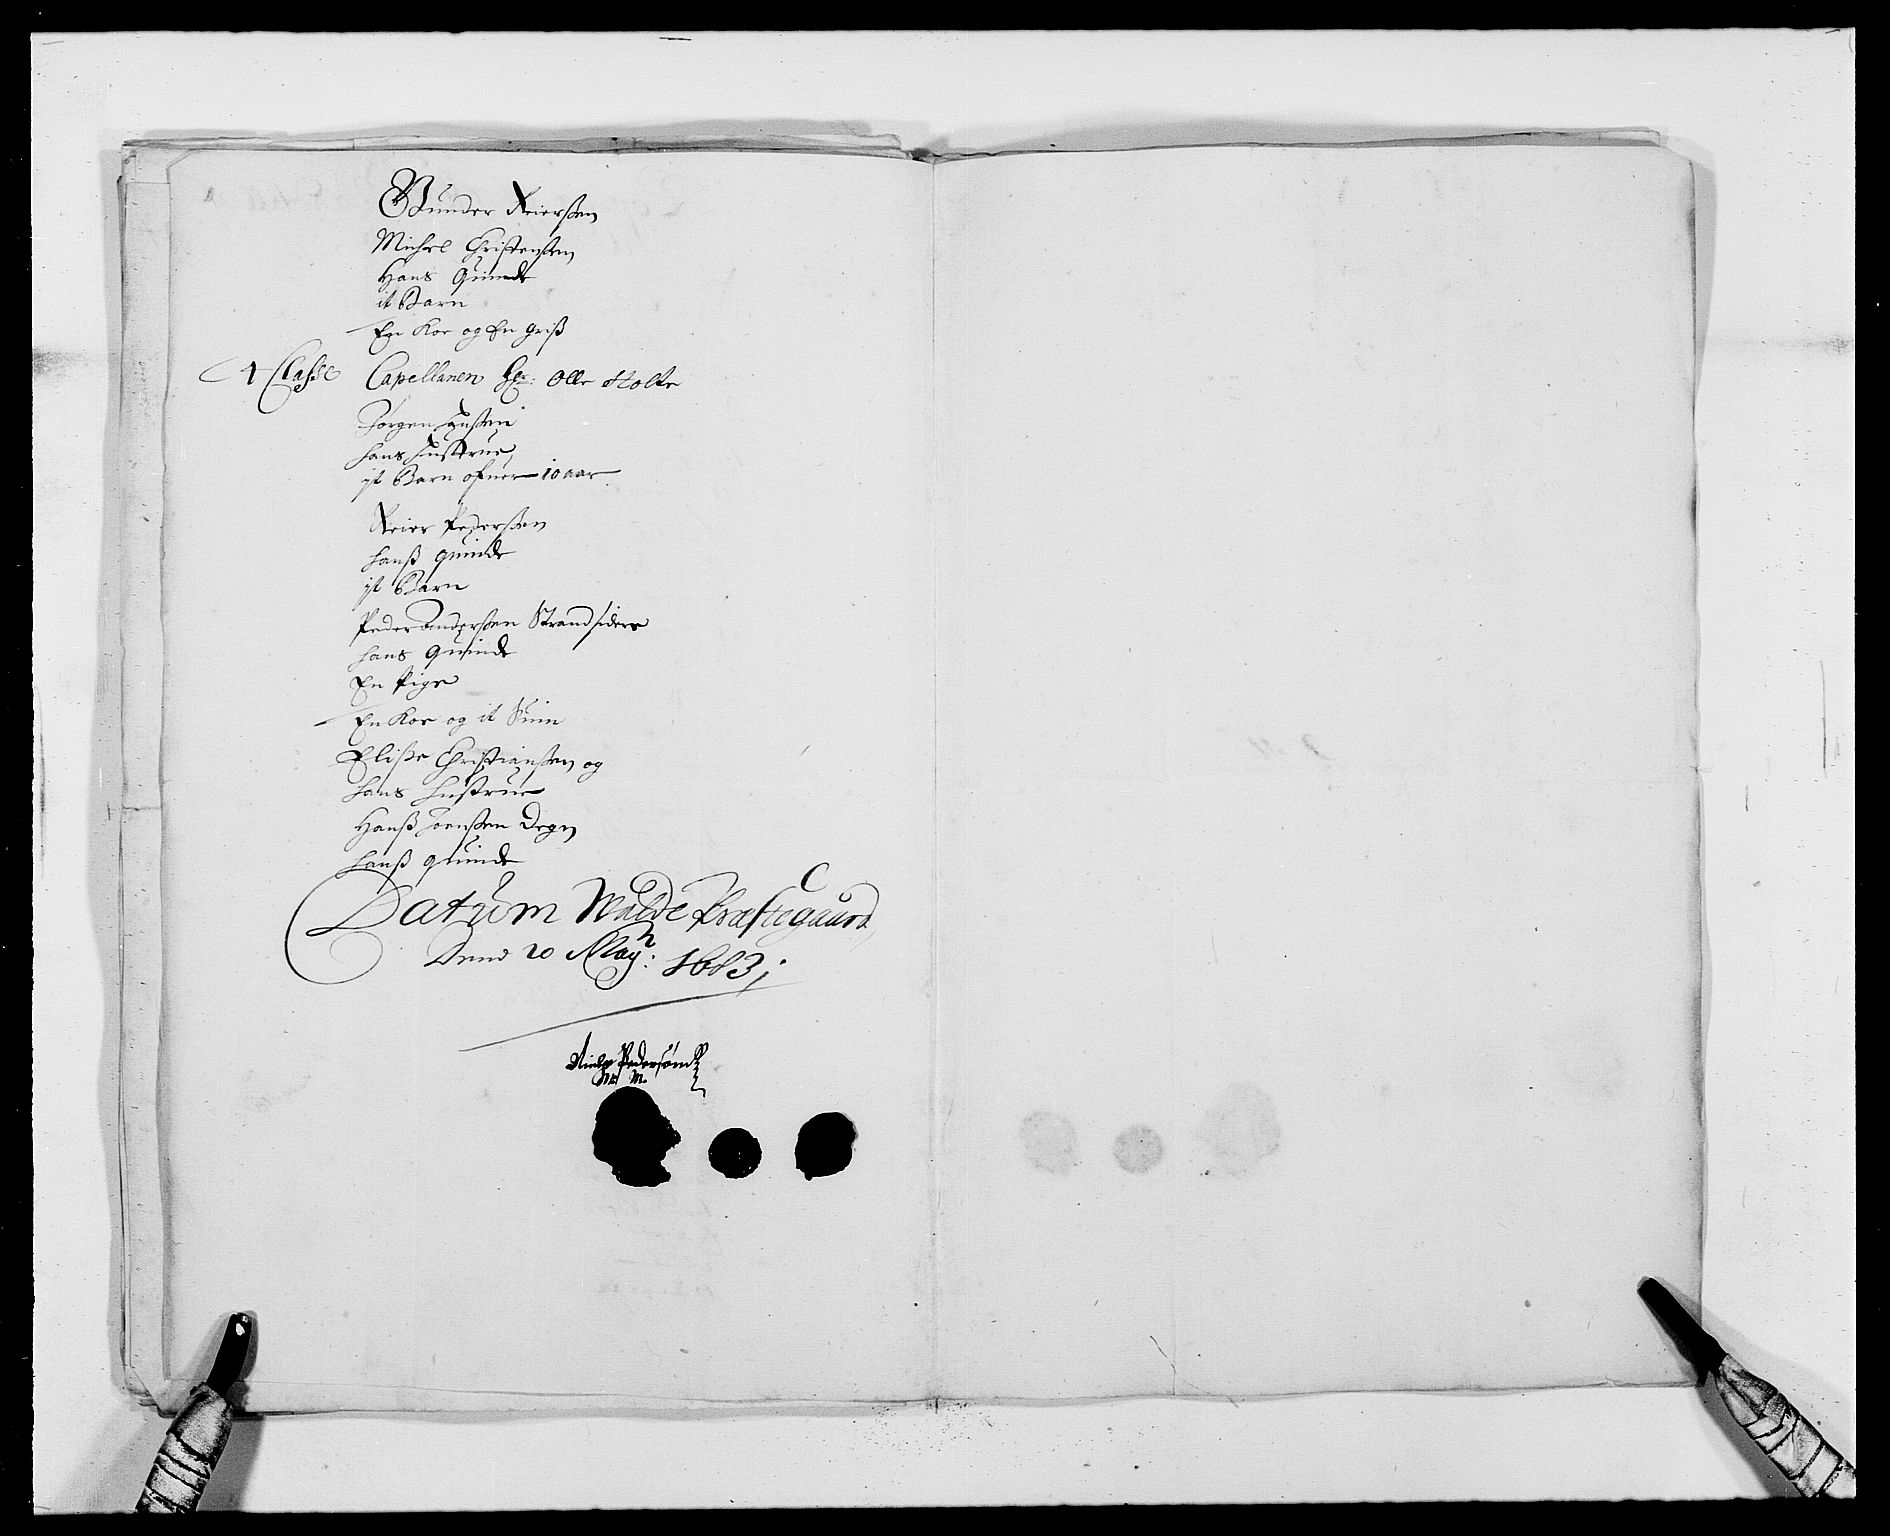 Gunder Reierßen
Michel Christensen
Hans Quinde
it Barn
En Koe og En griß
1 Classe Capellanen Hr: Olle Holte
Jørgen Jenßen
hans hustrue
it Barn ofuer 10 aar
Reier Pederßen
hanß quinde
it Barn
Peder Anderßen Strandsidere
hans Quinde
En Pige
En Koe og it Suin
Eliße Christianßen og
hans hustrue
Hanß Joenßen Degn
hanß quinde
Datum Walde Præstegaard
Dend 20 May: 1683;
Niels Pedersøn